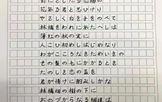 前にさしたる花櫛の
花ある君と思ひけり
やさしく白き手をのべて
林檎をわれにあたへしは
薄紅の秋の実に
人こひ初めしはじめなり
わがこころなきためいきの
その髪の毛にかかるとき
たのしき恋の盃を
君が情に酌みしかな
林檎畑の樹の下に
おのづからなる細道は